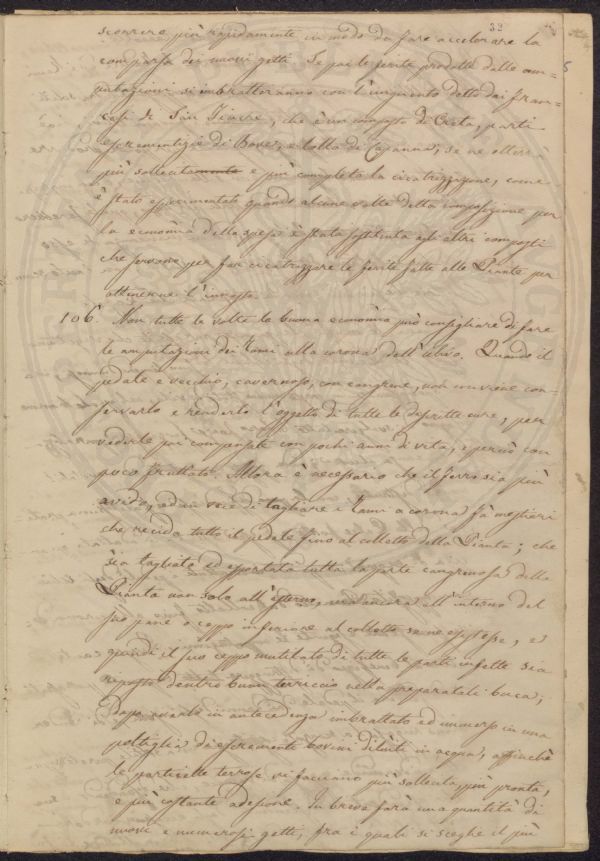 32
scorrere più rapidamente in modo da fare accelerare la
comparsa dei nuovi getti. Se poi le ferite prodotte dalle am=
putazioni si imbratteranno con l'unguento detto dai fran=
cesi di San Fiacre, che è un composto di Creta, parti
escrementizie di Bove, e bolla di Capanna, se ne otterrà
più sollecitamente e più completa la cicatrizzazione, come
è stato esperimentato quando alcune volte detta composizione per
la economia della spesa è stata sostituita agli altri composti
che servono per far cicatrizzare le ferite fatte alle Piante per
ottenerne l'innesto.
106 Non tutte le volte la buona economia può consigliare di fare
le amputazioni dei rami alla corona dell'ulivo. Quando il
pedale è vecchio, cavernoso, con cangrene, non conviene con=
servarlo e renderlo l'oggetto di tutte le descritte cure, per
vederle poi compensate con pochi anni di vita, e perciò con
poco fruttato. Allora è necessario che il ferro sia più
avido, ed in vece di tagliare i rami a corona fà mestieri
che recida tutto il pedale fino al colletto della Pianta; che
sia tagliata ed esportata tutta la parte cangrenosa della
Pianta non solo all'esterno, ma ancora all'interno del
suo pane o ceppo inferiore al colletto se ne esistesse, e
quindi il suo ceppo mutilato di tutte le parti infette sia
riposto dentro buon terriccio nella preparatali buca;
Dopo averlo in antecedenza imbrattato ed immerso in una
poltiglia di escremento bovino diluito in acqua, affinchè
le particelle terrose vi facciano più sollecita, più pronta,
e più costante adesione. In breve farà una quantità di
nuovi e numerosi getti, fra i quali si sceglie il più